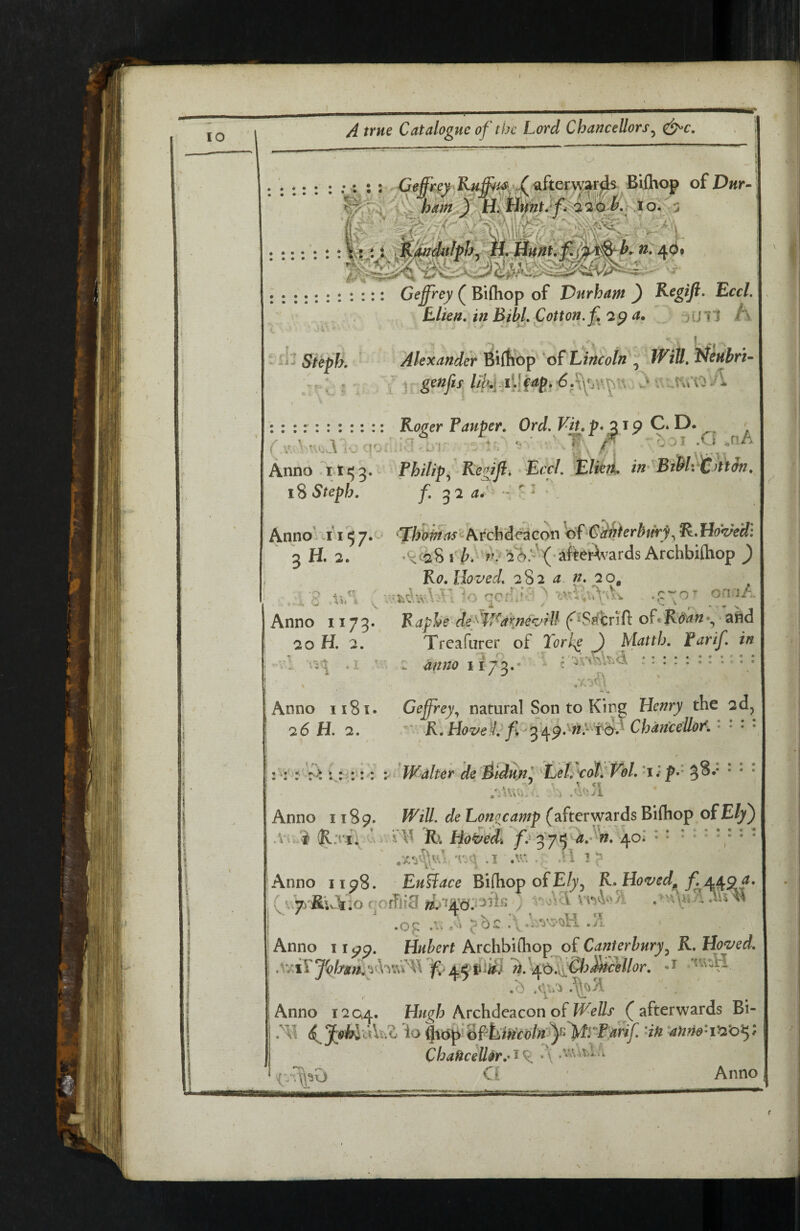 10
A true Catalogue of the Lord Chancellors, &c.
: : : : : : : : : : Geffrey Ruffus, (afterwards Biſhop of Dur-
ham) H. Hunt. f. 220 b. 10.
: : : : : : : : : : Randulph, H. Hunt. f. 218 b. n. 40.
: : : : : : : : : : : Geffrey (Biſhop of Durham) Regiſt. Eccl.
Elien. in Bibl. Cotton. f. 29 a.
Steph. Alexander Biſhop of Lincoln, Will. Neubri-
genſis lib. 1. cap. 6.
: : : : : : : : : : : Roger Pauper. Ord. Vit. p. 319 C. D.
Anno 1153. Philip, Regiſt. Eccl. Elien. in Bibl. Cotton.
18 Steph. f. 32 a.
Anno 1157. Thomas Archdeacon of Canterbury, R. Hoved.
3 H. 2. 281 b. n. 20. (afterwards Archbiſhop)
Ro. Hoved. 282 a n. 20.
Anno 1173. Raphe de Warnevill (Sacriſt of Roan, and
20 H. 2. Treaſurer of Yorke) Matth. Pariſ. in
anno 1173.
Anno 1181. Geffrey, natural Son to King Henry the 2d,
26 H. 2. R. Hoved. f. 349. n. 10. Chancellor. : : : :
: : : : : : : : : Walter de Bidun, Lel. col. Vol. 1. p. 38. : : :
Anno 1189. Will. de Longcamp (afterwards Biſhop of Ely)
1 R. 1. R. Hoved. f. 375 a. n. 40. : : : : : : :
Anno 1198. Euſtace Biſhop of Ely, R. Hoved. f. 449 a.
n. 40.
Anno 1199. Hubert Archbiſhop of Canterbury, R. Hoved.
1 Johan. f. 451 n. 40. Chancellor.
Anno 1204. Hugh Archdeacon of Wells (afterwards Bi-
ſhop of Lincoln) M. Pariſ. in anno 1205;
Chancellor.
Anno